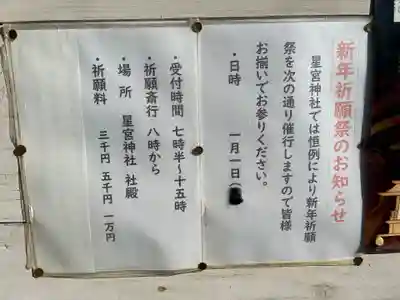 新年祈願祭のお知らせ
星宮神社では恒例により新年祈願
祭を次の通り催行しますので皆様
お揃いでお参りください。
・日時　一月一日(
・受付時間　七時半～十五時
・祈願斎行　八時から
・場所　星宮神社　社殿
・祈願料　三千円　五千円　一万円